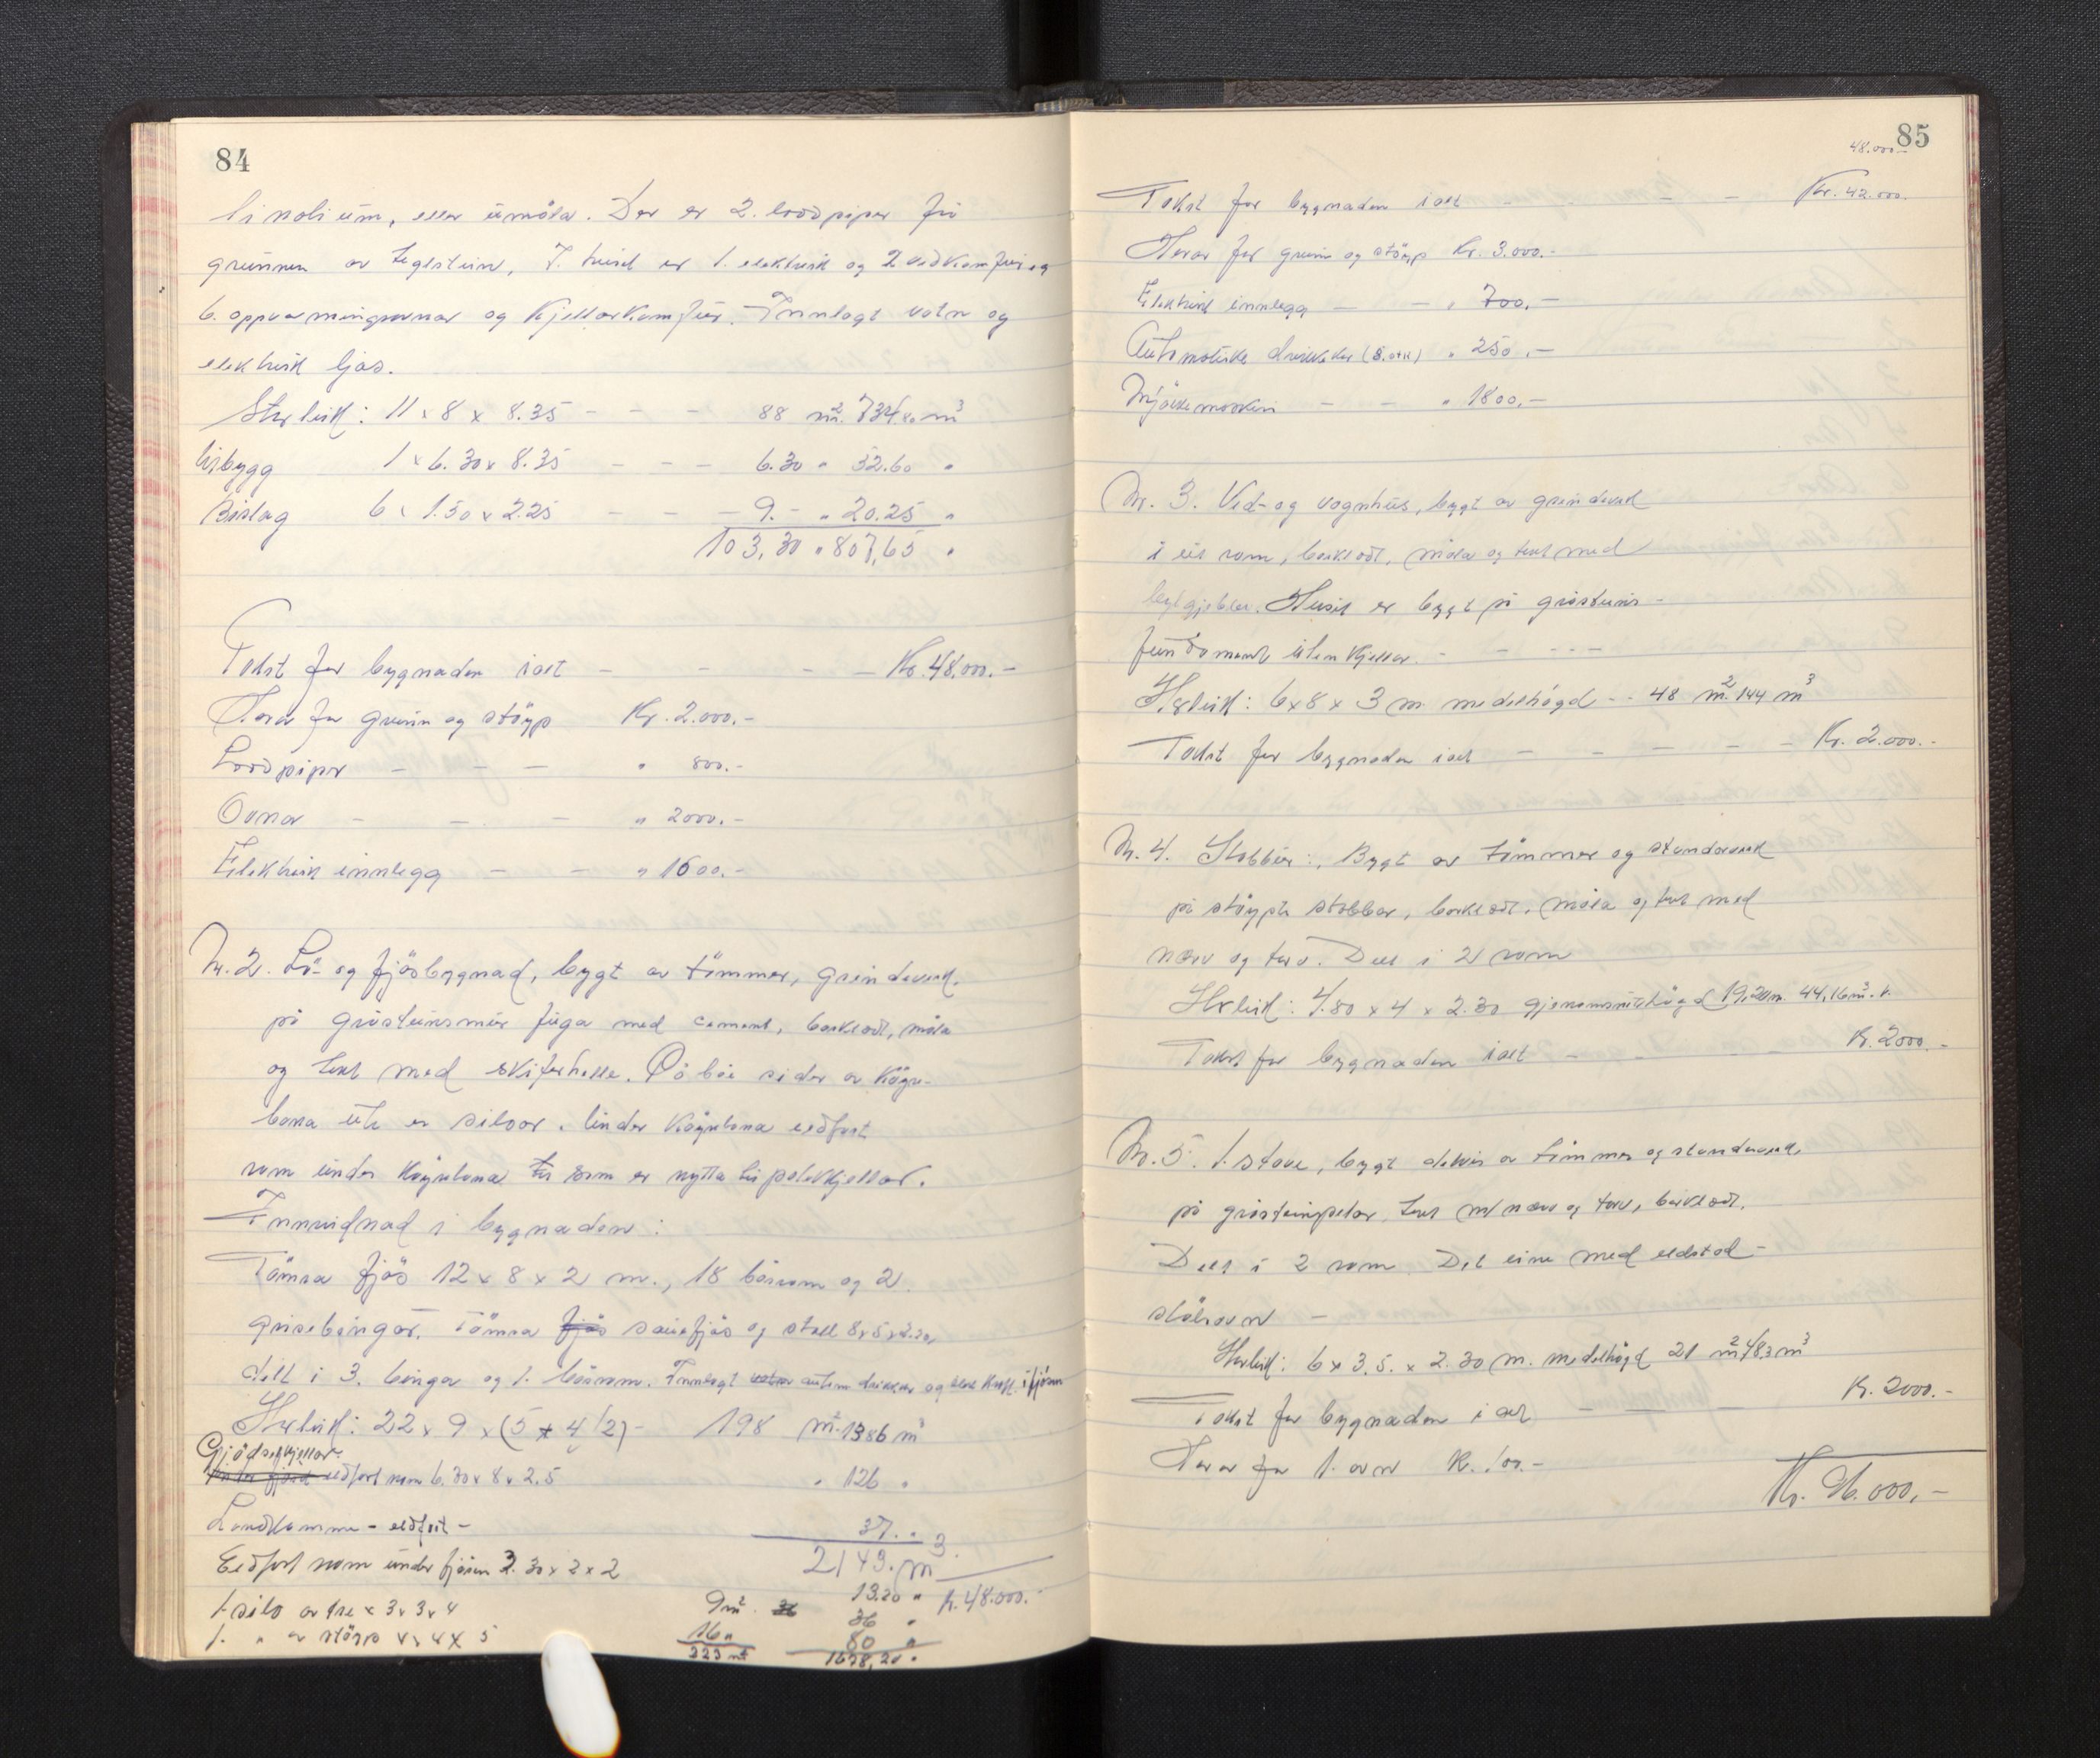 84
linolium, eller umåla. Der er 2. loddpiper frå
grunnen av teglstein, I. huset er 1. elektrisk og 2 vedkomfur og
6. oppvarmingsomnar og Kjellarkomfur. Innlagt vatn og
elektrisk ljos.
Storleik: 11 x 8 x 8.35 - - - 88 m². 734.80 m³
Utbygg 1 x 6.30 x 8.35 - - - 6.30 " 52.60 "
Bislag 6 x 1.50 x 2.25 - - - 9.- " 20.25 "
103,30 " 807,65 "
Takst for bygnaden ialt - - - - Kr. 48.000.-
Herav for grunn og støyp Kr. 2.000.-
Loddpipor - - - " 800.-
Ovnar - - - " 2000.-
Elektrisk innlegg - - " 1600.-
Nr. 2. Lö- og fjösbygnad, bygt av tömmer, grindaverk.
på gråsteinsmur fuga med cement, bordkledt, måla
og tekt med skiferhelle. På båe sider av Köyre-
brua ute er siloar. Under Köyrebrua eldfast
rom under Köyrebrua som er nytta til potetkjellar.
Innreidnad i bygnaden:
Tömra fjös 12 x 8 x 2 m., 18 båsrom og 2
grisebingar. Tömra fjös sauefjös og stall 8x5x2.20,
delt i 3. bingar og 1. båsrom. Innlagt vatn autom drikkar og elek kraft. i fjösen
Storleik: 22 x 9 x (5 + 4/2) - 198 m² 1386 m³
Gjödselkjellar
eldfast rom 6.30 x 8 x 2.5 " 126 "
Landkamme - eldfast - 37. "
2149. m³.
Eldfast rom under fjösen 3.30 x 2 x 2 13.20 " Kr. 48.000.-
1 silo av tre x 3 x 3 x 4 9 m². 36 36 "
1. " av støyp 4 x 4 x 5 16 " 80 "
223 m² 1678,20 "
85
48.000.-
Takst for bygnaden ialt - - - Kr. 42.000.
Herav for grunn og støyp Kr. 3.000.-
Elektrisk innlegg - - " 700.-
Automatiske drikkekar (8. stk) " 250.-
Mjölkemaskin - - " 1800.-
Nr. 3. Ved- og vognhus, bygt av grindaverk
i eit rom, bordkledt, måla og tekt med
bylgjeblekk. Huset er bygt på gråsteins-
fundament uten kjellar. - - - - -
Storleik: 6x8 x 3 m. medelhögd - - 48 m². 144 m³
Takst for bygnaden ialt - - - - - Kr. 2.000.-
Nr. 4. Stabbur:, Bygt av tömmer og standarverk
på støypte stabbar, bordkledt, måla og tekt med
næver og torv. Delt i 2 rom
Storleik: 4.80 x 4 x 2.30 gjenomsnittshögd 19,20 m. 44,16 m³.
Takst for bygnaden ialt - - - Kr. 2000.-
Nr. 5. 1. stove, bygt delvis av tömmer og standarverk.
på gråsteinspelar, tekt m/ næver og torv, bordkledt.
Delt i 2 rom. Det eine med eldstad -
Storleik: 6 x 3.5. x 2.30 m. medelhögd 21 m² 48,3 m³
Takst for bygnaden i alt - - - Kr. 2000.-
Herav for 1. ovn Kr. 100.-
Kr. 96.000,-